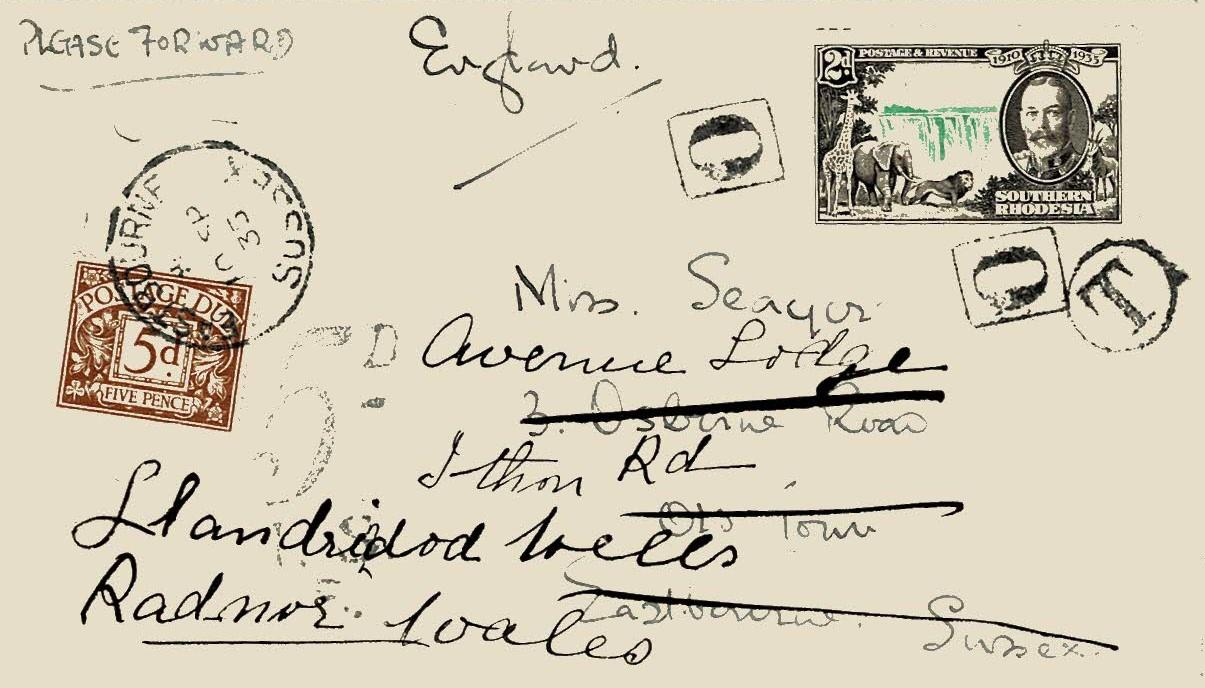 PLEASE FORWARD
England.
2d POSTAGE & REVENUE 1910 1935
SOUTHERN
RHODESIA
O
O
T
EASTBOURNE SUSSEX
35
POSTAGE DUE
5d.
FIVE PENCE
5D
Miss. Seayor
Avenue Lodge
3. Osborne Road
Ithon Rd
Old Town
Llandridod Wells
Eastbourne. Sussex.
Radnor. Wales